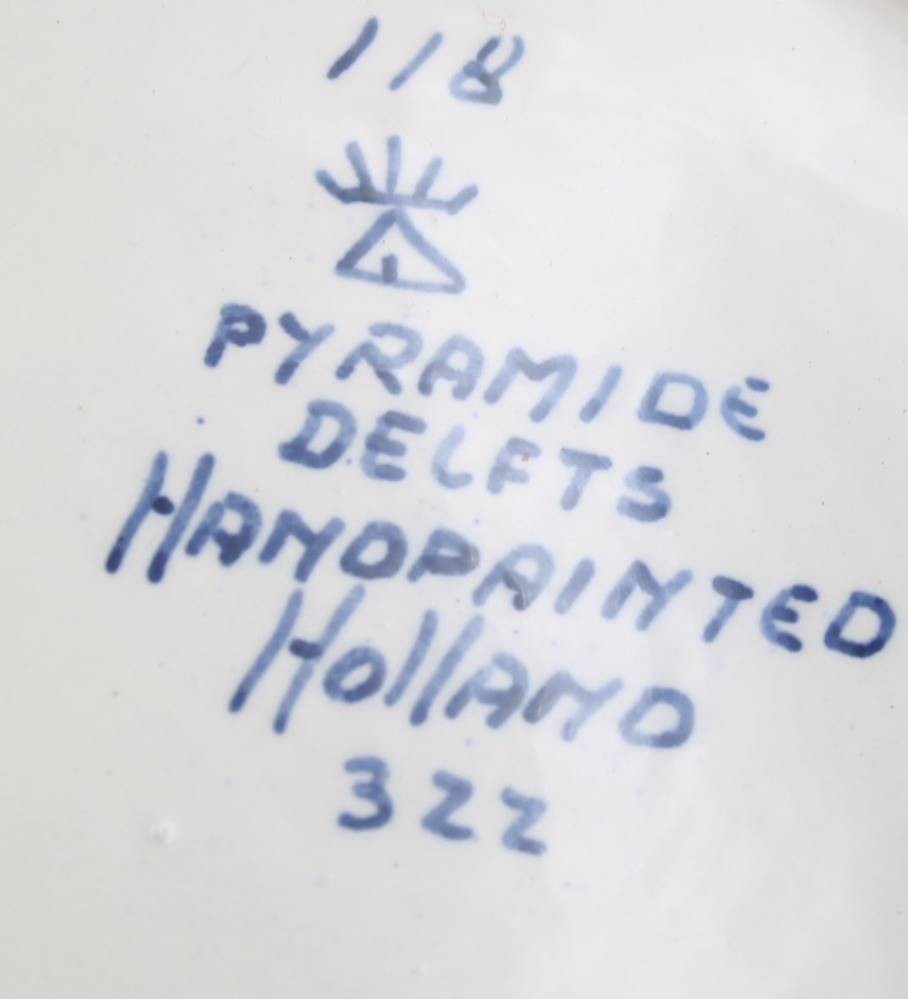 118
PYRAMIDE
DELFTS
HANDPAINTED
HollAND
322